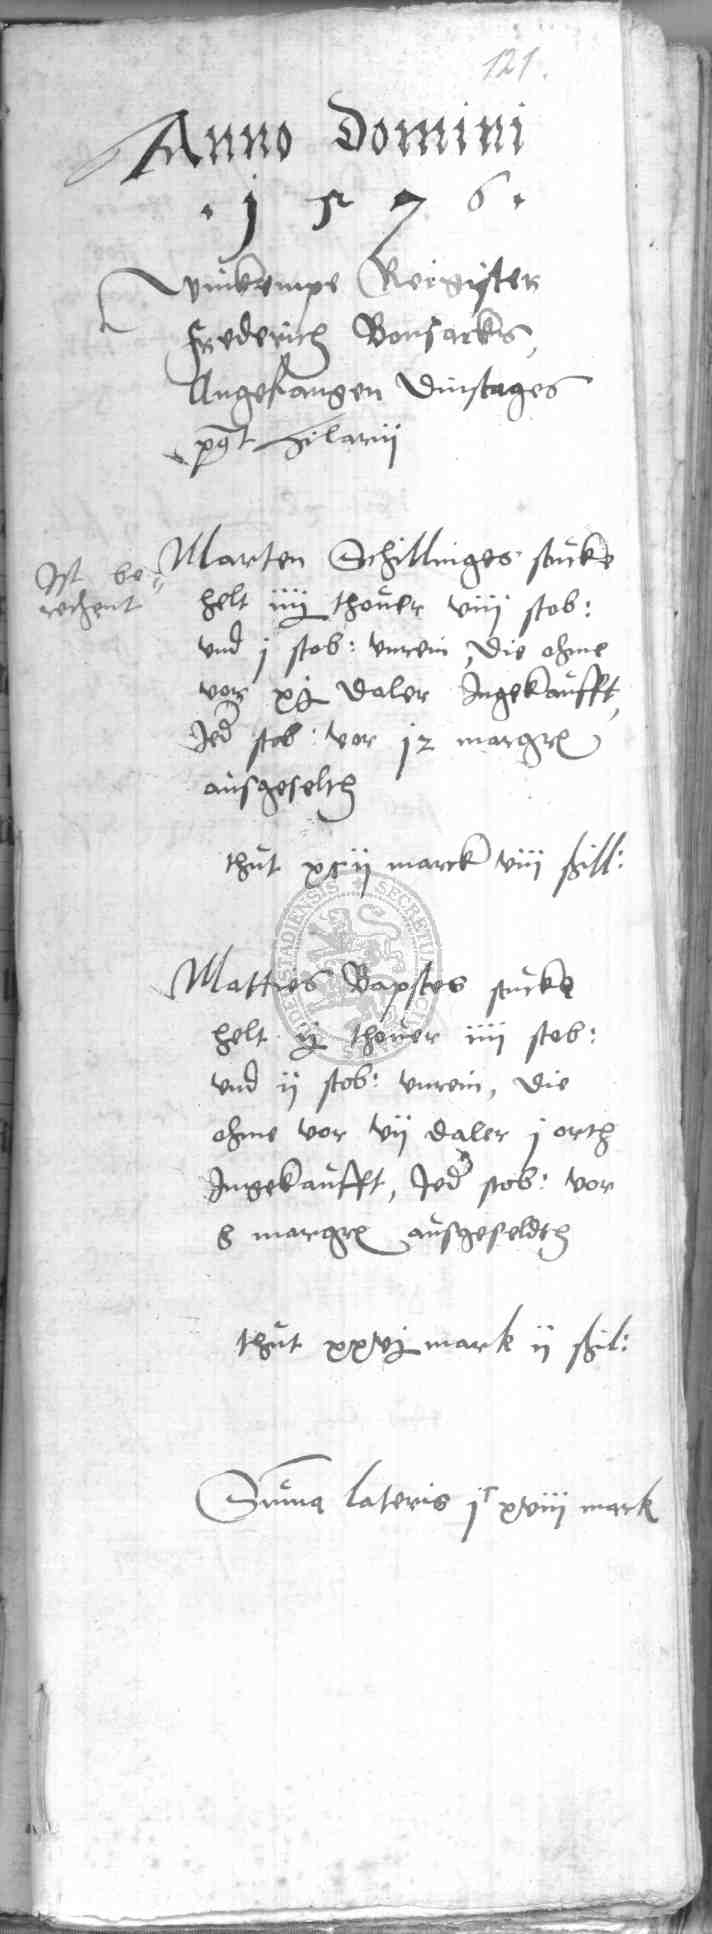 121.
Anno Domini
. 1 5 7 6 .
Vinkempe Reigister
Frederich Bonsacks,
Angefangen Dinstages
post Hilarii
Ist be=
rechent
Marten Schillinges stucke
helt iiij thover viii stob:
vnd j stob: vnrein, die ohme
vor xj daler Ingekaufft,
Jed stob: vor 12 margr
ausgeselth
thut xcij marck viii ßill:
Matties Bapstes stucke
helt ij thover iiii stob:
vnd ij stob: vnrein, die
ohme vor vij daler j orth
Ingekaufft, Jed stob: vor
8 margr ausgeseldth
thut xxvj mark ij ßil:
Summa lateris jc xviii mark
SECRETU